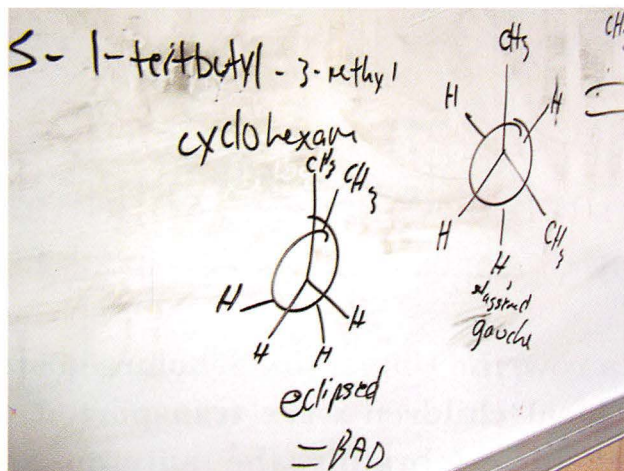 S - 1-tertbutyl - 3-methyl
cyclohexane
CH3
CH3
H
H
H
H
eclipsed
= BAD
CH3
H
H
H
CH3
H
staggered
gauche
CH3